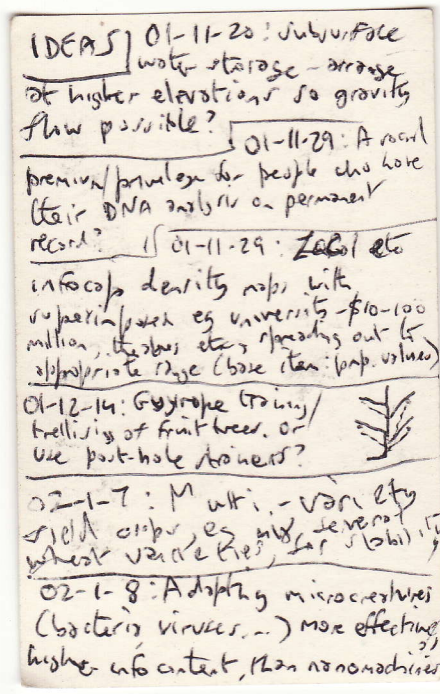 IDEAS 01-11-20: subsurface
water storage - arrange
at higher elevations so gravity
flow possible?
01-11-29: A social
premium/privilege for people who have
their DNA analysis on permanent
record?
01-11-29: Local etc
infocap density maps with
superimposed eg university - $10-100
million, spreading out to
appropriate range (base item: prop. values)
01-12-14: Guyrope training/
trellising of fruit trees. Or
use post-hole strainers?
02-1-7: Multi-variety
field crops, eg mix several
wheat varieties, for stability
02-1-8: Adapting microcreatures
(bacteria viruses...) more effective,
higher info content, than nanomachines